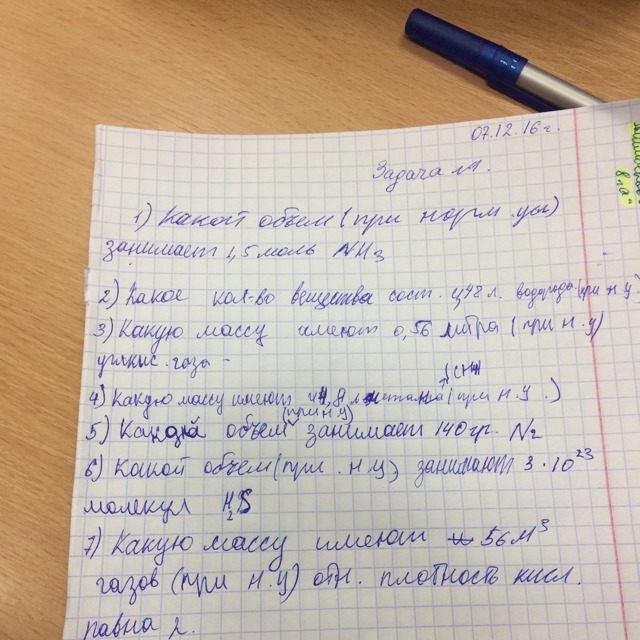 07.12.16 г.
Задача №1.
1) Какой объем (при норм. усл)
занимает 1,5 моль NH3
2) Какое кол-во вещества сост. 4,48 л. водорода (при н.у.
3) Какую массу имеют 0,56 литра (при н.у)
углкис. газа -
(CH4)
4) Какую массу имеют 44,8 л метана (при н.у.)
(при н.у)
5) Какой объем занимает 140 гр. N2
6) Какой объем (при н.у) занимают 3 · 10²³
молекул H2S
7) Какую массу имеют 56 м³
газов (при н.у) отн. плотность кисл.
равна 2.